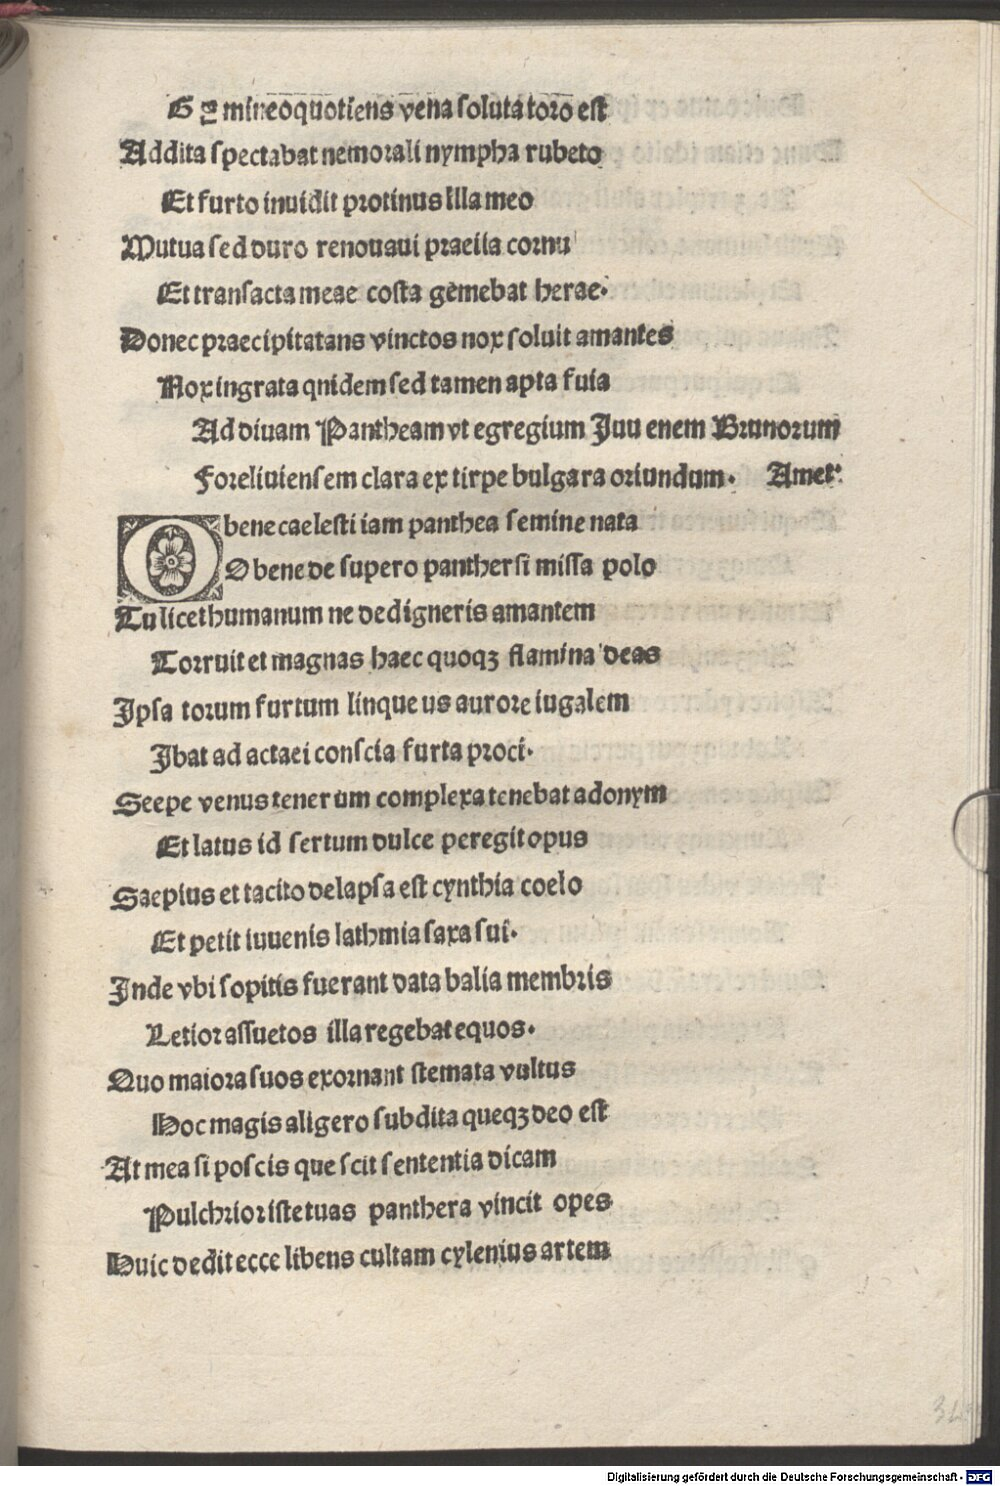 mineo quotiens vena soluta toro est
Addita spectabat nemorali nympha rubeto
Et furto inuidit protinus illa meo
Mutua sed duro renouaui praelia cornu
Et transacta meae costa gemebat herae.
Donec praecipitatans vinctos nox soluit amantes
Nox ingrata qnidem sed tamen apta fuia
Ad diuam Pantheam vt egregium Juu enem Brunorum
Foreliuiensem clara ex tirpe bulgara oriundum. Amet.
O bene caelesti iam panthea semine nata
O bene de supero panthersi missa polo
Tu licet humanum ne dedigneris amantem
Torruit et magnas haec quoqꝫ flamina deas
Ipsa torum furtum linque us aurore iugalem
Ibat ad actaei conscia furta proci.
Seepe venus tener um complexa tenebat adonym
Et latus id sertum dulce peregit opus
Saepius et tacito delapsa est cynthia coelo
Et petit iuuenis lathmia saxa sui.
Inde vbi sopitis fuerant data balia membris
Letior assuetos illa regebat equos.
Quo maiora suos exornant stemata vultus
Hoc magis aligero subdita queqꝫ deo est
At mea si poscis que scit sententia dicam
Pulchrior iste tuas panthera vincit opes
Huic dedit ecce libens cultam cylenius artem
Digitalisierung gefördert durch die Deutsche Forschungsgemeinschaft - DFG